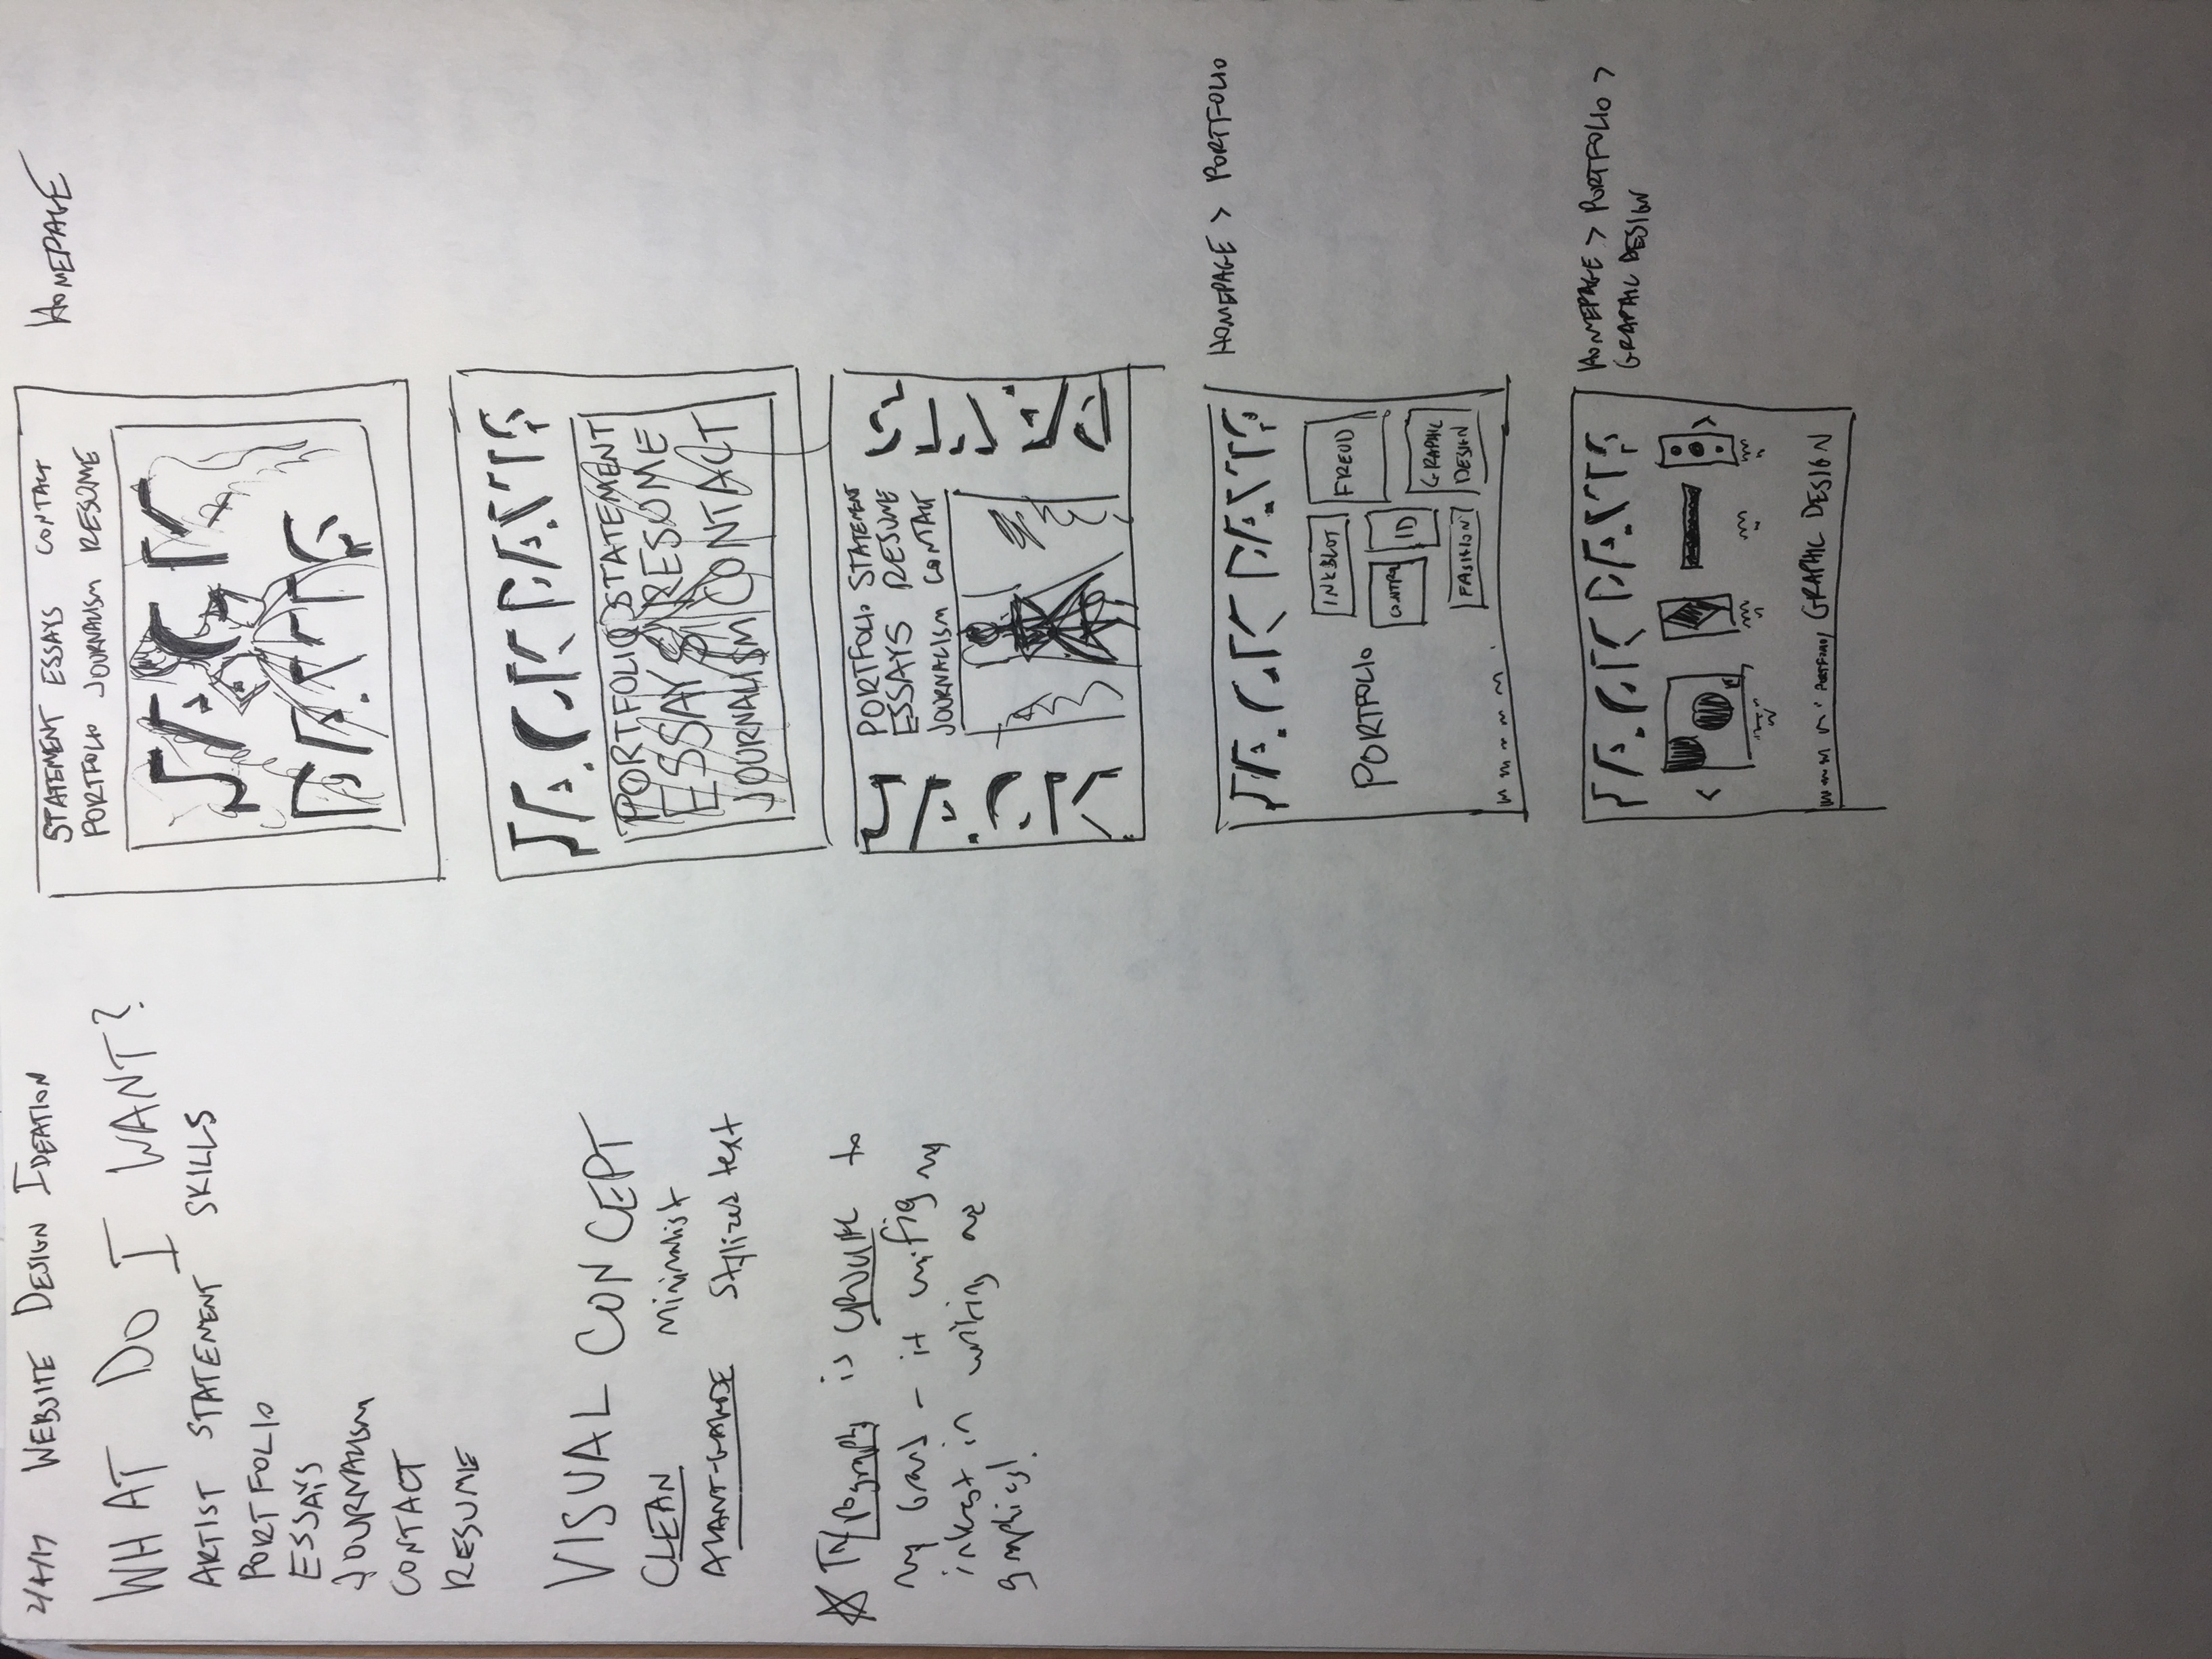 2/4/17 WEBSITE DESIGN IDEATION
WHAT DO I WANT?
ARTIST STATEMENT SKILLS
PORTFOLIO
ESSAYS
JOURNALISM
CONTACT
RESUME
VISUAL CONCEPT
CLEAN minimalist
AVANT-GARDE Stylized text
Typography is CRUCIAL to
my brand - it unifies my
interest in writing and
graphics!
HOMEPAGE
STATEMENT ESSAYS CONTACT
PORTFOLIO JOURNALISM RESUME
JACK
BATTS
JACK BATTS
PORTFOLIO STATEMENT
ESSAYS RESUME
JOURNALISM CONTACT
JACK
PORTFOLIO STATEMENT
ESSAYS RESUME
JOURNALISM CONTACT
BATTS
HOMEPAGE > PORTFOLIO
JACK BATTS
PORTFOLIO
INKBLOT
FREUD
CONTROL
ID
GRAPHIC
DESIGN
FASHION
HOMEPAGE > PORTFOLIO >
GRAPHIC DESIGN
JACK BATTS
< >
PORTFOLIO/ GRAPHIC DESIGN